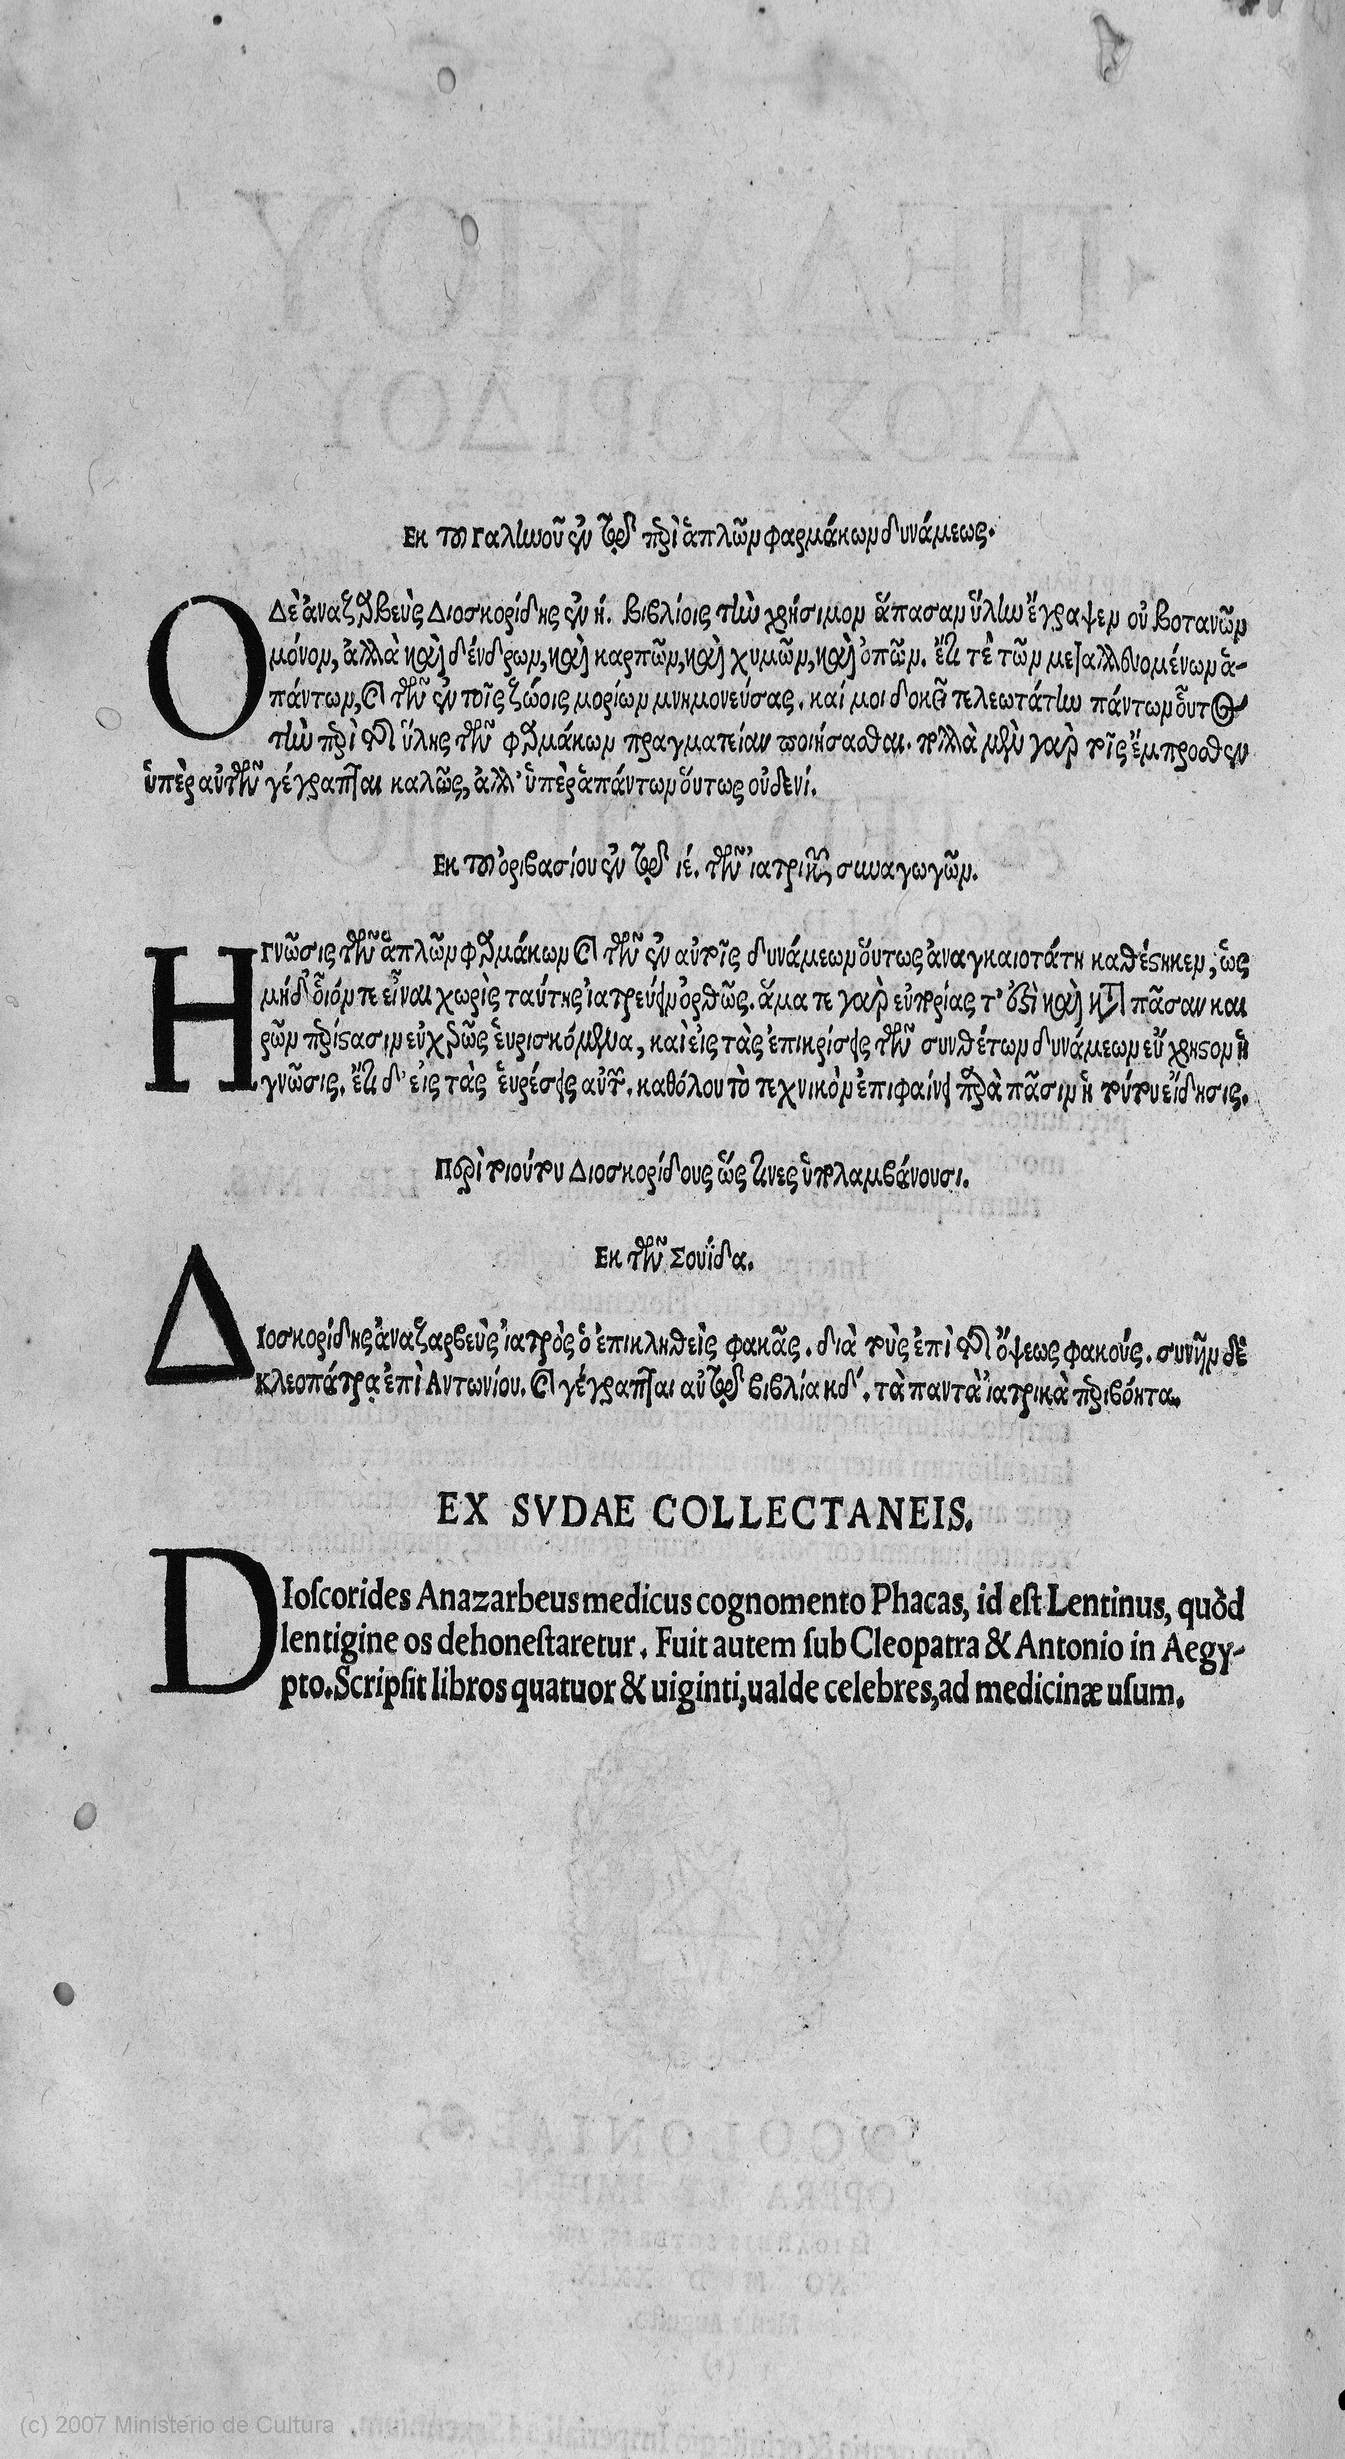 Εκ του Γαληνοῦ ἐν τῷ περὶ ἁπλῶν φαρμάκων δυνάμεως.
Ο ΔὲἀναζαρβεὺςΔιοσκορίδης ἐν ή. βιβλίοις τὴν χρήσιμον ἅπασαν ὕλην ἔγραψεν οὐ βοτανῶν
μόνον, ἀλλὰ καὶ δένδρων, καὶ καρπῶν, καὶ χυμῶν, καὶ ὀπῶν. ἔτι τὲ τῶν μεταλλευομένων ἁ-
πάντων, καὶ τῶν ἐν τοῖς ζώοις μορίων μνημονεύσας. καί μοι δοκεῖ τελεωτάτην πάντων οὗτος
τὴν περὶ τῆς ὕλης τῶν φαρμάκων πραγματείαν ποιήσασθαι. πολλὰ μὲν γὰρ τοῖς ἔμπροσθεν
ὑπὲρ αὐτῶν γέγραπται καλῶς, ἀλλ' ὑπὲρ ἁπάντων οὕτως οὐδενί.
Εκ του ὀριβασίου ἐν τῷ ιέ. τῶν ἰατρικῶν συναγωγῶν.
Η Γνῶσις τῶν ἁπλῶν φαρμάκων καὶ τῶν ἐν αὐτοῖς δυνάμεων οὕτως ἀναγκαιοτάτη καθέστηκεν, ὡς
μήδ' οἷόν τε εἶναι χωρὶς ταύτης ἰατρεύειν ὀρθῶς. ἅμα τε γὰρ εὐπορίας τ' ἐστὶ καὶ κατὰ πᾶσαν και
ρῶν περίστασιν εὐχερῶς εὑρισκόμενα, καὶ εἰς τὰς ἐπικρίσεις τῶν συνθέτων δυνάμεων εὔχρηστον ἡ
γνῶσις. ἔτι δ' εἰς τὰς εὑρέσεις αὐτῶν. καθόλου τὸ τεχνικὸν ἐπιφαίνει παρὰ πᾶσιν ἡ τούτου εἴδησις.
Περὶ τοιούτου Διοσκορίδους ὥς τινες ὑπολαμβάνουσι.
Εκ τῶν Σουΐδα.
Διοσκορίδης ἀναζαρβεὺς ἰατρὸς ὁ ἐπικληθεὶς φακᾶς. διὰ τοὺς ἐπὶ τῆς ὄψεως φακούς. συνῆν δὲ
κλεοπάτρᾳ ἐπὶ Αντωνίου. καὶ γέγραπται αὐτῷ βιβλία κδ'. τὰ παντὰ ἰατρικὰ περιβόητα.
EX SVDAE COLLECTANEIS.
DIoſcorides Anazarbeus medicus cognomento Phacas, id eſt Lentinus, quòd
lentigine os dehoneſtaretur. Fuit autem ſub Cleopatra & Antonio in Aegy-
pto. Scripſit libros quatuor & uiginti, ualde celebres, ad medicinæ uſum.
(c) 2007 Ministério de Cultura